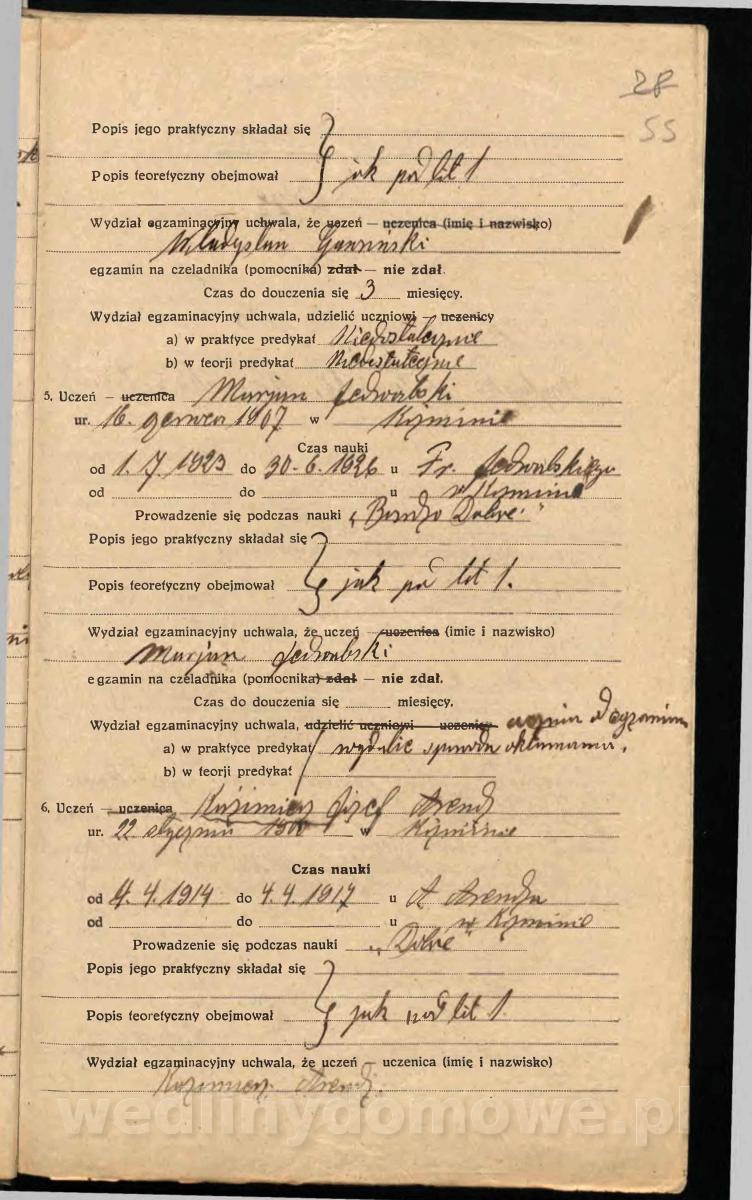 28
55
Popis jego praktyczny składał się
Popis teoretyczny obejmował jak pod lit 1
Wydział egzaminacyjny uchwala, że uczeń — uczenica (imię i nazwisko)
Władysław
egzamin na czeladnika (pomocnika) zdał — nie zdał.
Czas do douczenia się 3 miesięcy.
Wydział egzaminacyjny uchwala, udzielić uczniowi — uczenicy
a) w praktyce predykat Niedostatecznie
b) w teorji predykat Niedostatecznie
5. Uczeń — uczenica Marjan Jedwabski
ur. 16. czerwca 1907 w Koźminie
Czas nauki
od 1. 7. 1923 do 30. 6. 1926 u Fr. Jedwabskiego
od do u w Koźminie
Prowadzenie się podczas nauki „Bardzo Dobre"
Popis jego praktyczny składał się
Popis teoretyczny obejmował jak pod lit 1.
Wydział egzaminacyjny uchwala, że uczeń — uczenica (imię i nazwisko)
Marjan Jedwabski
egzamin na czeladnika (pomocnika) zdał — nie zdał.
Czas do douczenia się miesięcy.
Wydział egzaminacyjny uchwala, udzielić uczniowi — uczenicy ucznia od egzaminu
a) w praktyce predykat wydalić okłamania.
b) w teorji predykat
6. Uczeń — uczenica Kazimierz Józef Arendt
ur. 22 stycznia 1900 w Koźminie
Czas nauki
od 4. 4. 1914 do 4. 4. 1917 u A Arendta
od do u w Koźminie
Prowadzenie się podczas nauki „Dobre"
Popis jego praktyczny składał się
Popis teoretyczny obejmował jak pod lit 1.
Wydział egzaminacyjny uchwala, że uczeń — uczenica (imię i nazwisko)
Kazimierz Arendt
wedlinydomowe.pl